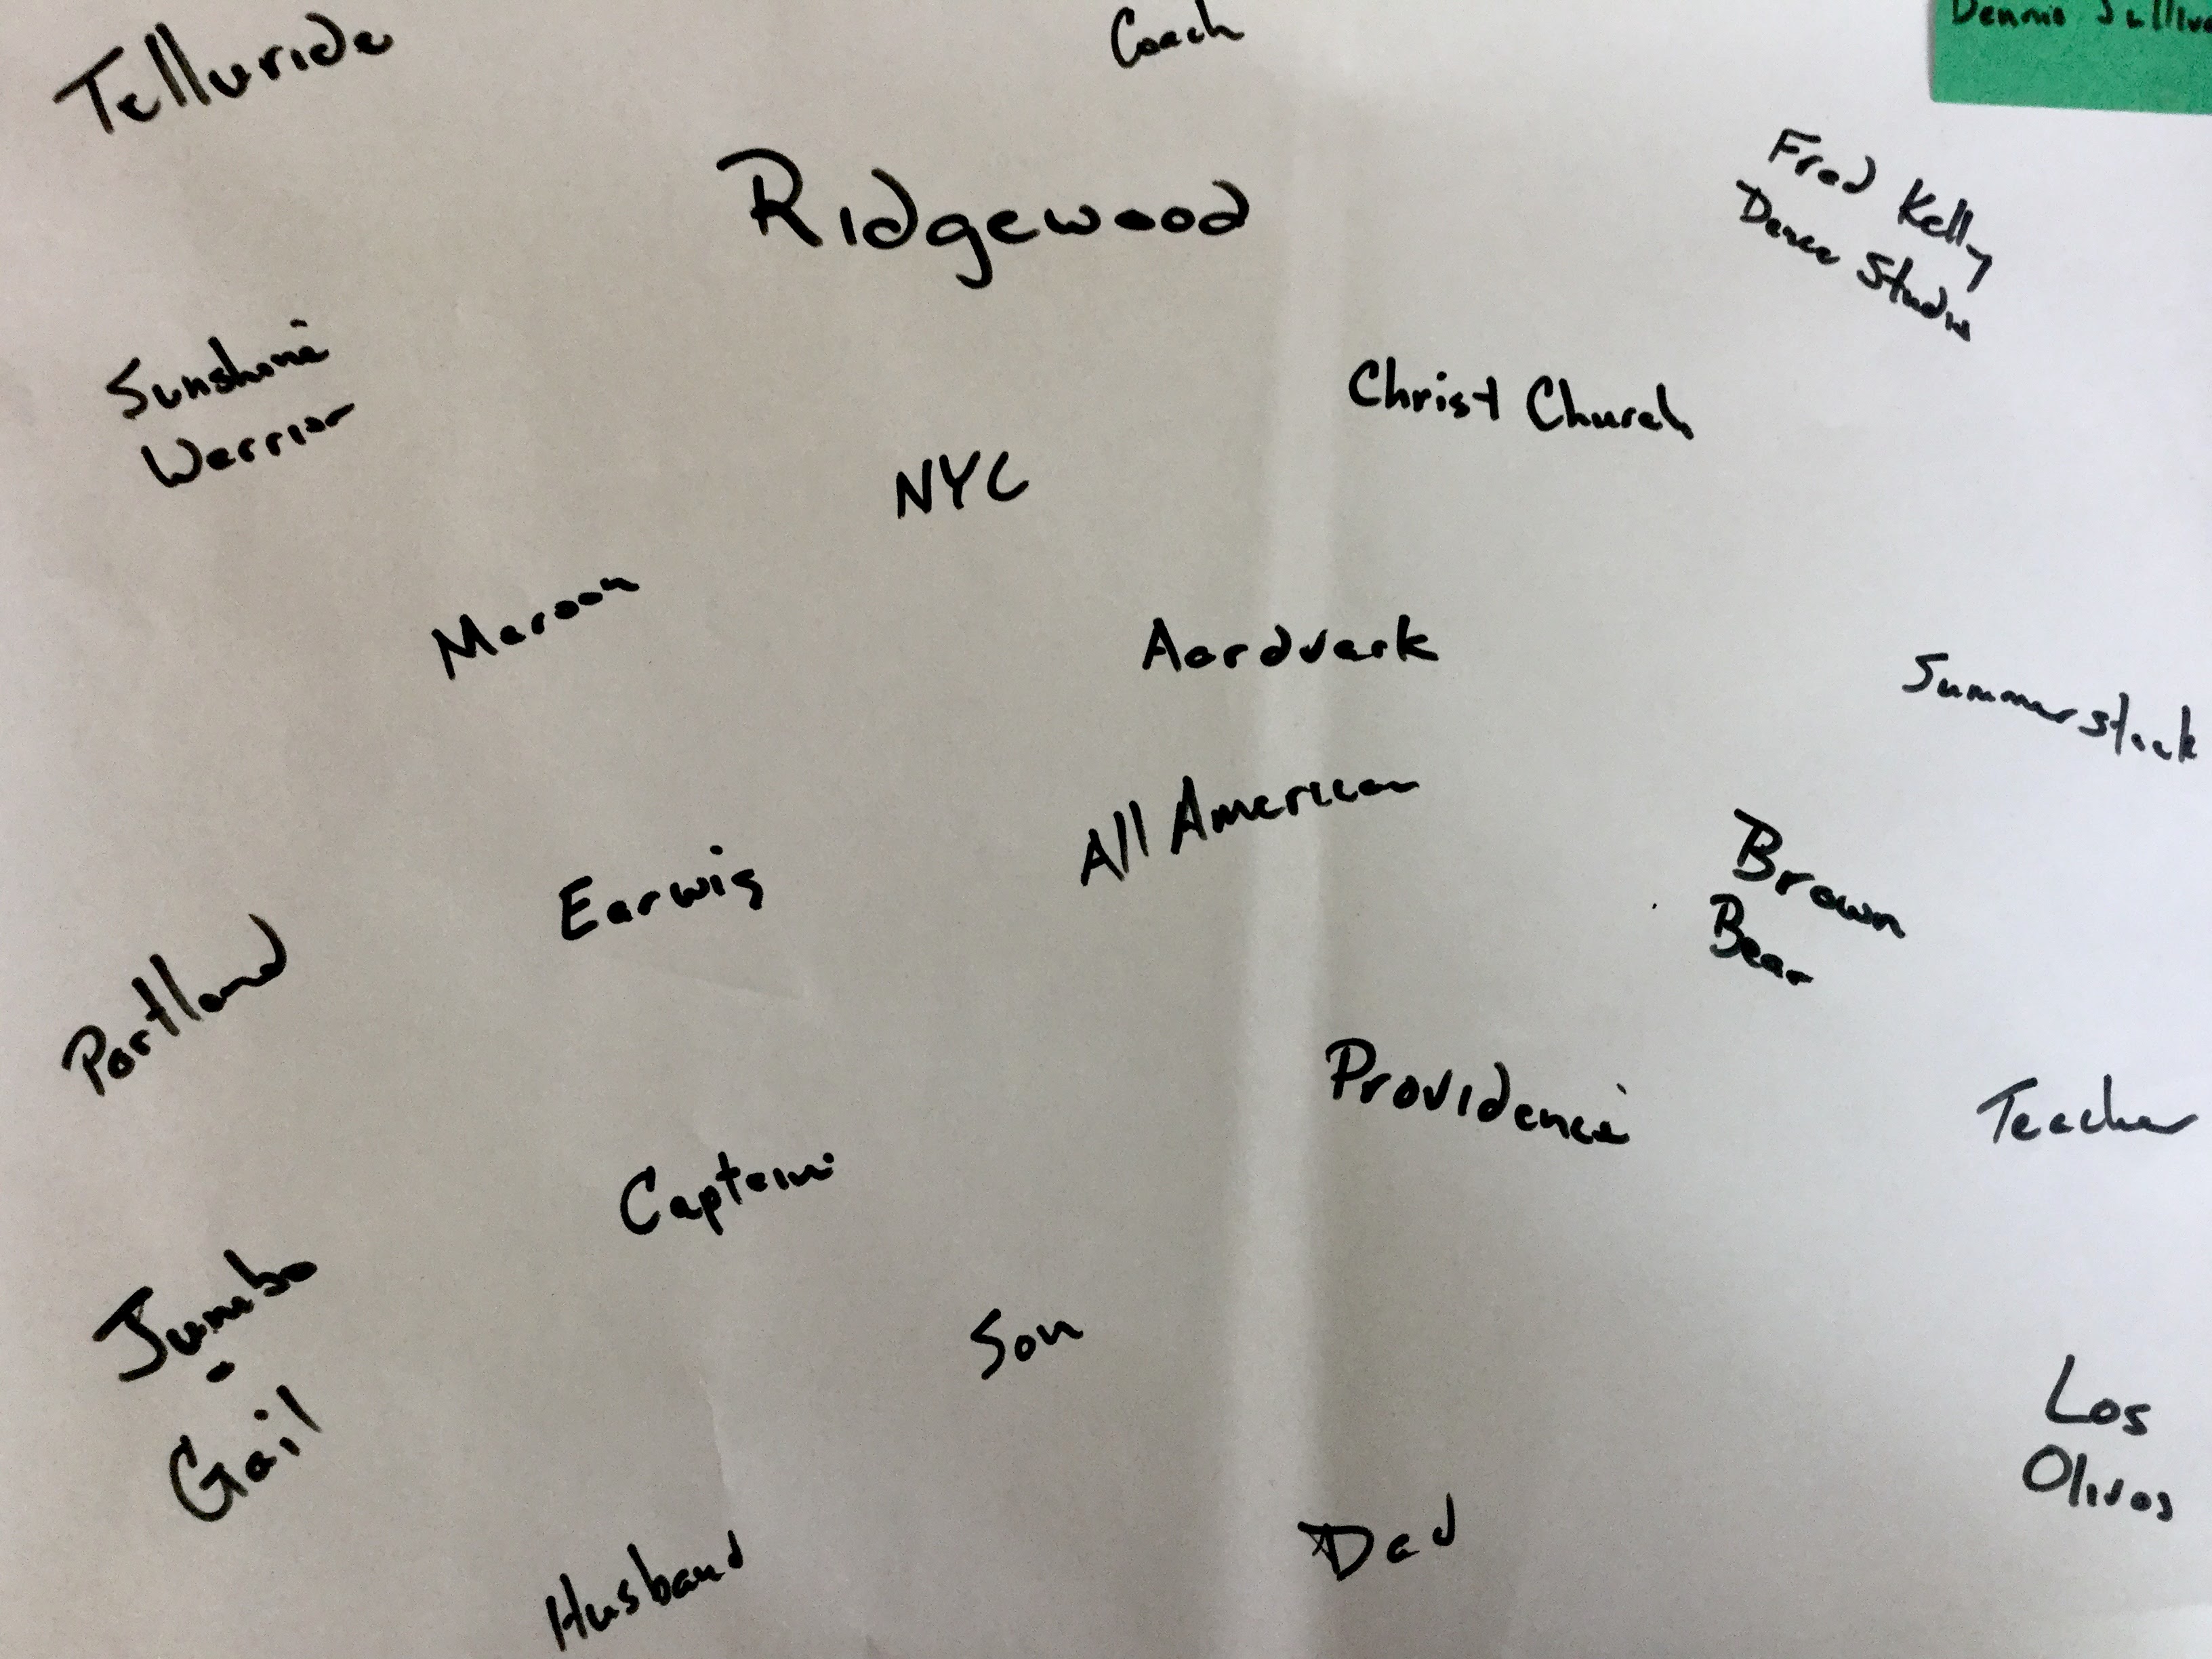 Telluride
Coach
Dennis
Ridgewood
Fred Kelly
Dance Studio
Sunshine
Warrior
Christ Church
NYC
Maroon
Aardvark
Summerstock
All American
Earwig
Brown
Bear
Portland
Providence
Teacher
Captain
Jumbo
-
Gail
Son
Los
Olivos
Dad
Husband